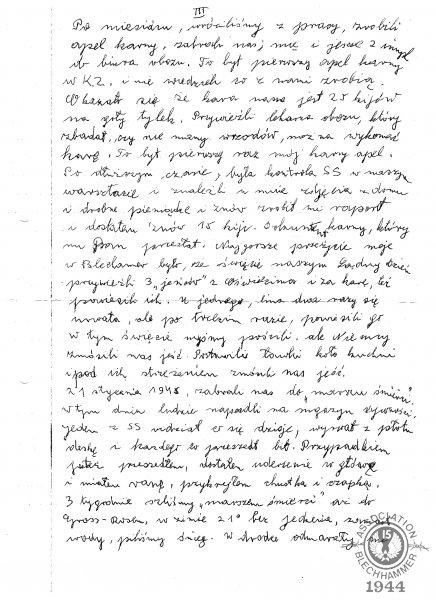 III
Po miesiącu, wróciliśmy z pracy, zrobili
apel karny, zabrali nas, mnie i jeszcze 2 innych
do biura obozu. To był pierwszy apel karny
w K.Z. i nie wiedziałem co z nami zrobią.
Okazało się że kara nasza jest 25 kijów
na goły tyłek. Przywieźli lekarza obozu, który
zbadał, czy nie mamy wrzodów, można wykonać
karę. To był pierwszy raz mój karny apel.
Po dłuższym czasie, była kontrola SS w naszym
warsztacie i znaleźli u mnie zdjęcia z domu
i drobne pieniądze i znów zrobił mi raport
i dostałem znów 15 kiji. Dokument karny, który
mi Pan przesłał. Najgorsze przeżycie moje
w Blechamer było, że w święto naszym Sądny Dzień
przywieźli 3 "jeńców" z Oświęcimia i za karę, też
powiesili ich. U jednego, lina dwa razy się
urwała, ale po trzecim razie, powiesili go
w tym święcie myśmy pościli. ale Niemcy
zmusili nas jeść. Postawili ławki koło kuchni
i pod ich strzeżeniem zmusili nas jeść.
21 stycznia 1945, zabrali nas do "marszu śmierci".
w tym dniu ludzie napadli na magazyn żywności.
jeden z SS widział co się dzieje, wyrwał z płotu
deskę i każdego co przeszedł bił. Przypadkiem
jak przeszedłem, dostałem uderzenie w głowę
i miałem ranę, przykryłem chustką i czapką.
3 tygodnie szliśmy "marszem śmierci" aż do
Gross-Rosen, w zimie 21° bez jedzenia,
wody, piliśmy śnieg. W drodze odmarzły
ASSOCIATION
BLECHHAMMER
15
1944